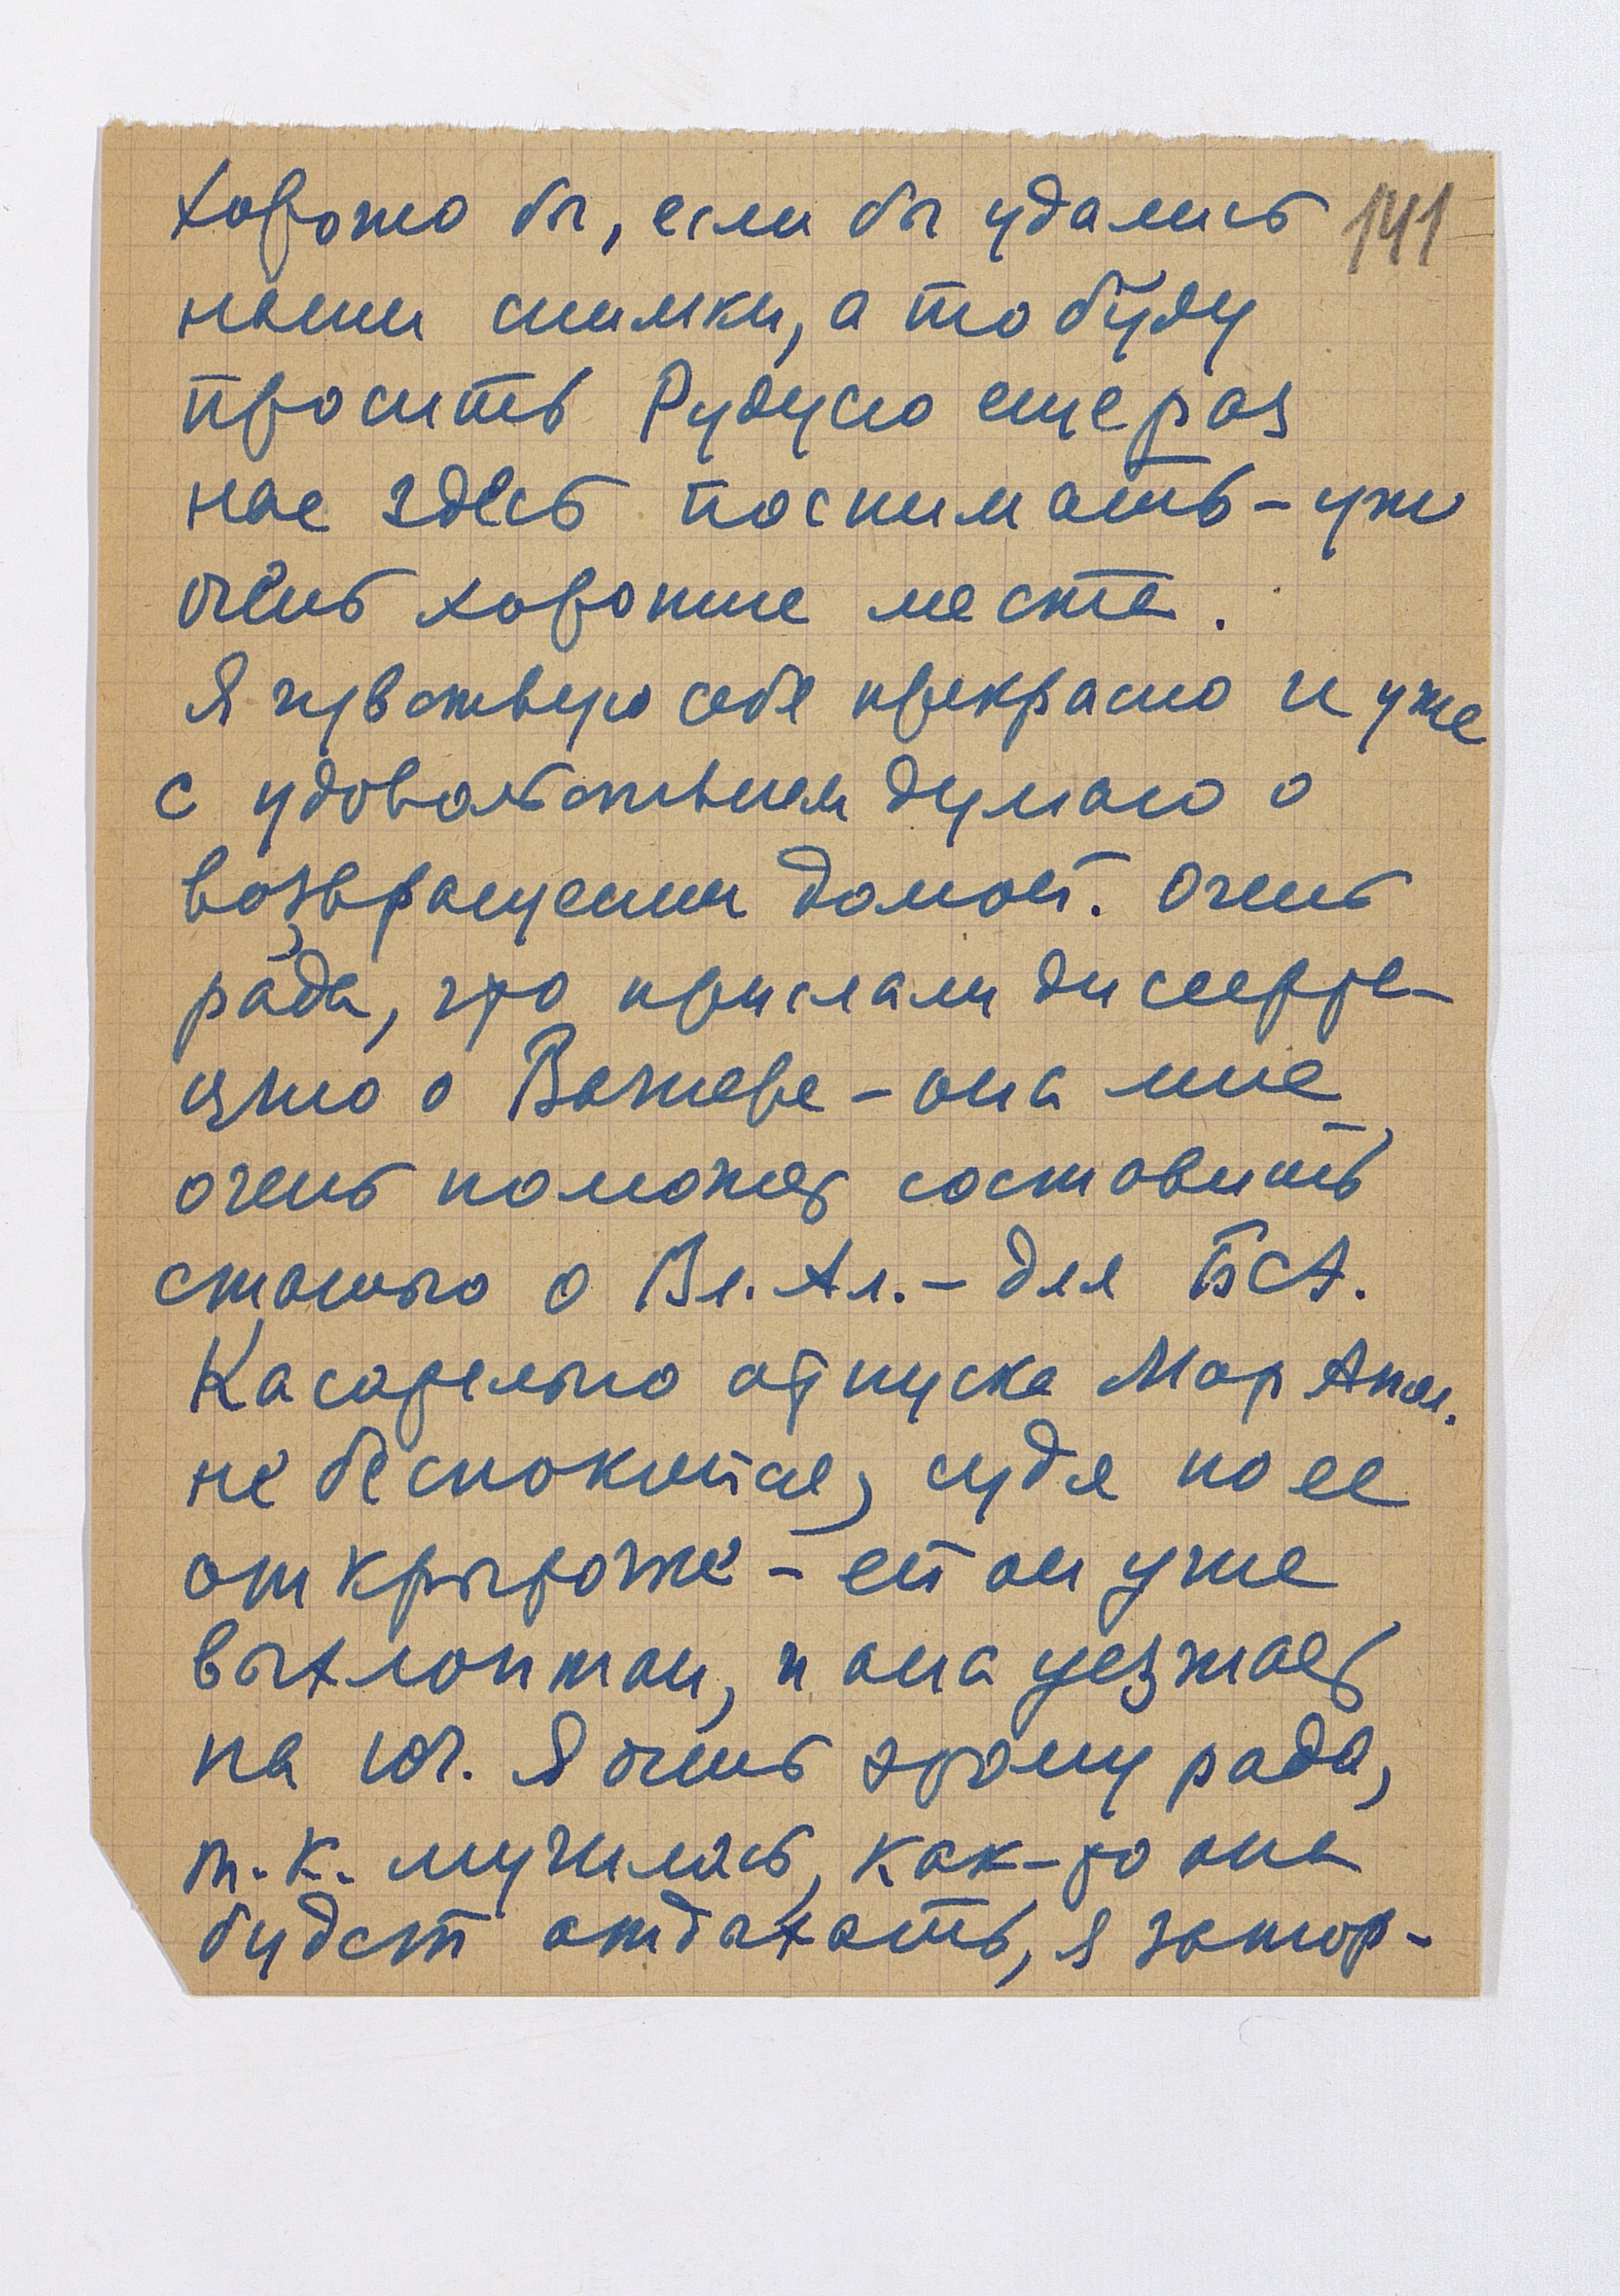 Хорошо бы, если бы удались 141
наши снимки, а то буду
просить Рудусю еще раз
нас здесь поснимать – уж
очень хорошие места.
Я чувствую себя прекрасно и уже
с удовольствием думаю о
возвращении домой. Очень
рада, что прислали диссерта-
цию о Ватере – она мне
очень поможет составить
статью о Вл. Ал. – для БСА.
Касательно отпуска Мар Анат.
не беспокойся, судя по ее
открыточке – ей он уже
выхлопотан, и она уезжает
на юг. Я очень этому рада,
т. к. мучилась, как-то она
будет отдыхать, я затор-